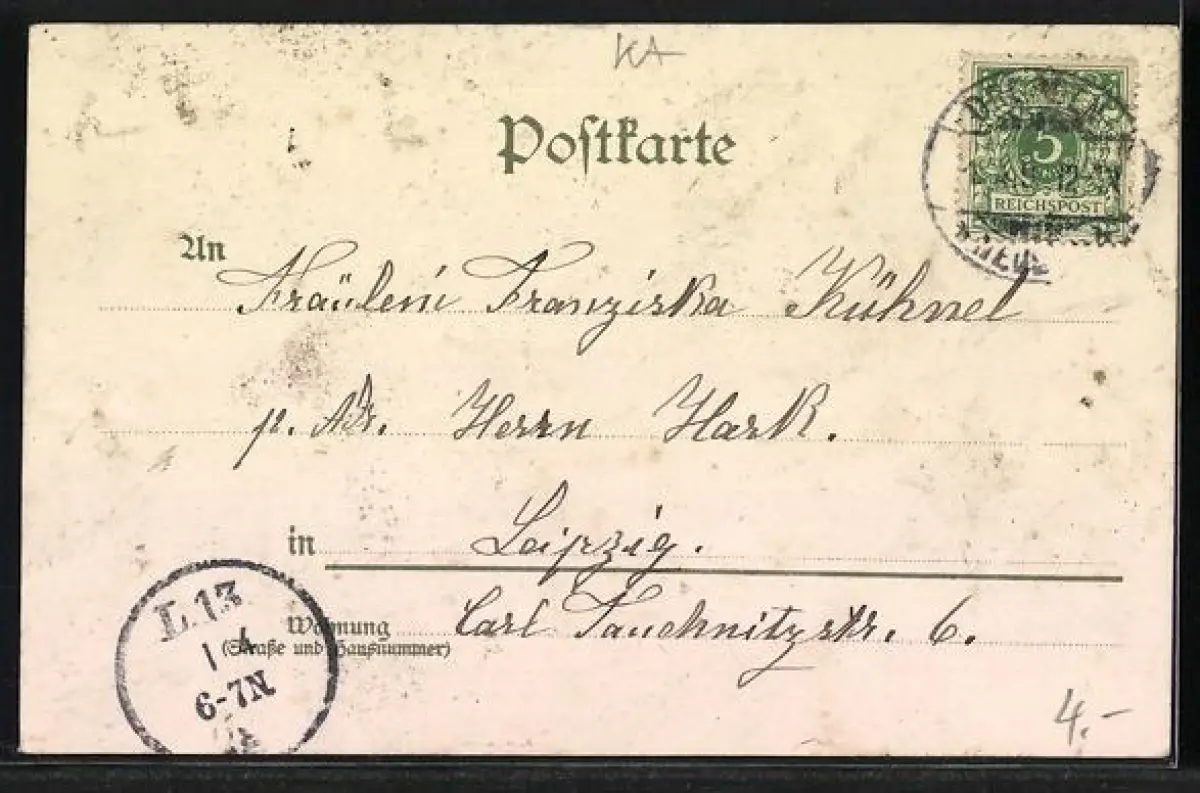 KA
Postkarte
5
REICHSPOST
12-1N
An
Fräulein Franziska Kühnel
p. Adr. Herrn Hark.
in Leipzig.
Wohnung Carl Tauchnitzstr. 6.
(Straße und Hausnummer)
L.13
1 4
6-7N
4.-